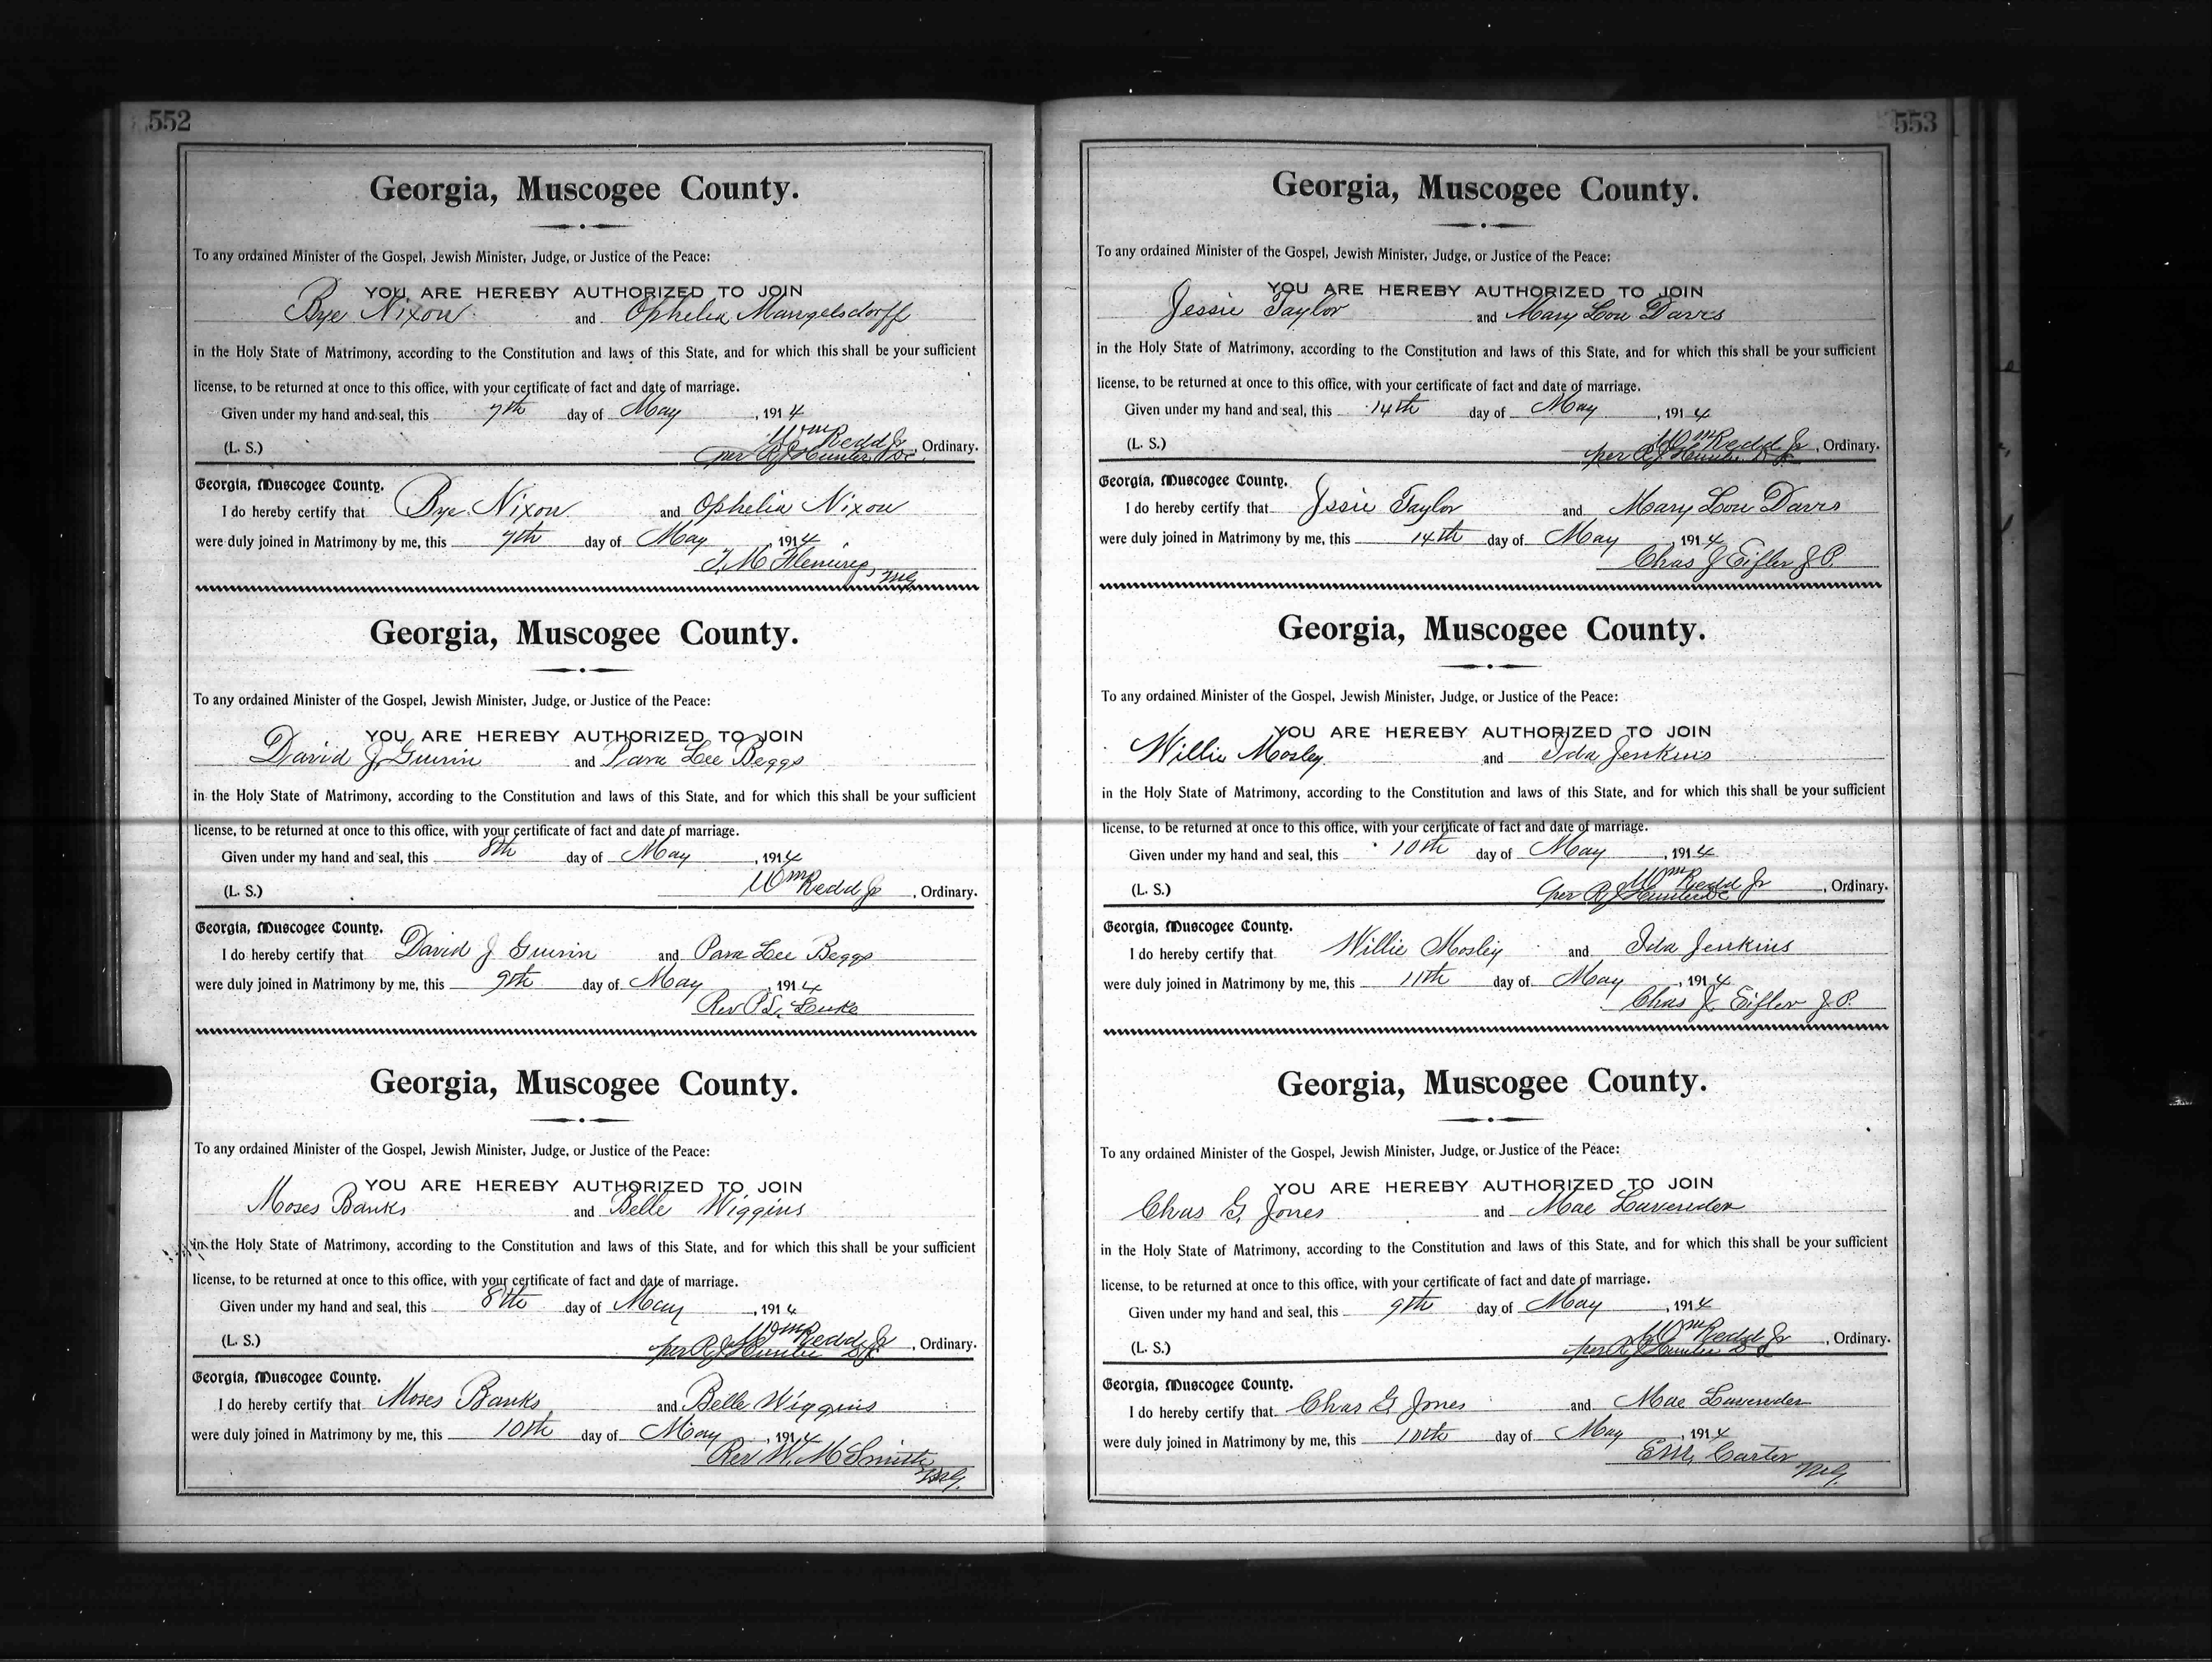 552
Georgia, Muscogee County.
To any ordained Minister of the Gospel, Jewish Minister, Judge, or Justice of the Peace:
YOU ARE HEREBY AUTHORIZED TO JOIN
Bye Nixon and Ophelia Mangelsdorff
in the Holy State of Matrimony, according to the Constitution and laws of this State, and for which this shall be your sufficient
license, to be returned at once to this office, with your certificate of fact and date of marriage.
Given under my hand and seal, this 7th day of May, 1914
(L. S.) Wm Redd Jr, Ordinary.
per R J Hunter D.C.
Georgia, Muscogee County.
I do hereby certify that Bye Nixon and Ophelia Nixon
were duly joined in Matrimony by me, this 7th day of May, 1914
T. M. Fleming, MG
Georgia, Muscogee County.
To any ordained Minister of the Gospel, Jewish Minister, Judge, or Justice of the Peace:
YOU ARE HEREBY AUTHORIZED TO JOIN
David J. Guinn and Para Lee Beggs
in the Holy State of Matrimony, according to the Constitution and laws of this State, and for which this shall be your sufficient
license, to be returned at once to this office, with your certificate of fact and date of marriage.
Given under my hand and seal, this 8th day of May, 1914
(L. S.) Wm Redd Jr, Ordinary.
Georgia, Muscogee County.
I do hereby certify that David J Guinn and Para Lee Beggs
were duly joined in Matrimony by me, this 9th day of May, 1914
Rev P.L. Luke
Georgia, Muscogee County.
To any ordained Minister of the Gospel, Jewish Minister, Judge, or Justice of the Peace:
YOU ARE HEREBY AUTHORIZED TO JOIN
Moses Banks and Belle Wiggins
in the Holy State of Matrimony, according to the Constitution and laws of this State, and for which this shall be your sufficient
license, to be returned at once to this office, with your certificate of fact and date of marriage.
Given under my hand and seal, this 8th day of May, 1914
(L. S.) Wm Redd Jr, Ordinary.
per R J Hunter
Georgia, Muscogee County.
I do hereby certify that Moses Banks and Belle Wiggins
were duly joined in Matrimony by me, this 10th day of May, 1914
Rev W. M Smith
MG.
553
Georgia, Muscogee County.
To any ordained Minister of the Gospel, Jewish Minister, Judge, or Justice of the Peace:
YOU ARE HEREBY AUTHORIZED TO JOIN
Jessie Taylor and Mary Lou Davis
in the Holy State of Matrimony, according to the Constitution and laws of this State, and for which this shall be your sufficient
license, to be returned at once to this office, with your certificate of fact and date of marriage.
Given under my hand and seal, this 14th day of May, 1914
(L. S.) Wm Redd Jr, Ordinary.
per R J Hunter
Georgia, Muscogee County.
I do hereby certify that Jssie Taylor and Mary Lou Davis
were duly joined in Matrimony by me, this 14th day of May, 1914
Chas J Eifler J.P.
Georgia, Muscogee County.
To any ordained Minister of the Gospel, Jewish Minister, Judge, or Justice of the Peace:
YOU ARE HEREBY AUTHORIZED TO JOIN
Willie Mosley and Ida Jenkins
in the Holy State of Matrimony, according to the Constitution and laws of this State, and for which this shall be your sufficient
license, to be returned at once to this office, with your certificate of fact and date of marriage.
Given under my hand and seal, this 10th day of May, 1914
(L. S.) Wm Redd Jr, Ordinary.
per R J Hunter
Georgia, Muscogee County.
I do hereby certify that Willie Mosley and Ida Jenkins
were duly joined in Matrimony by me, this 11th day of May, 1914
Chas J Eifler J.P.
Georgia, Muscogee County.
To any ordained Minister of the Gospel, Jewish Minister, Judge, or Justice of the Peace:
YOU ARE HEREBY AUTHORIZED TO JOIN
Chas G. Jones and Mae Lavender
in the Holy State of Matrimony, according to the Constitution and laws of this State, and for which this shall be your sufficient
license, to be returned at once to this office, with your certificate of fact and date of marriage.
Given under my hand and seal, this 9th day of May, 1914
(L. S.) Wm Redd Jr, Ordinary.
per R J Hunter
Georgia, Muscogee County.
I do hereby certify that Chas G Jones and Mae Lavender
were duly joined in Matrimony by me, this 10th day of May, 1914
E.M. Carter
MG.